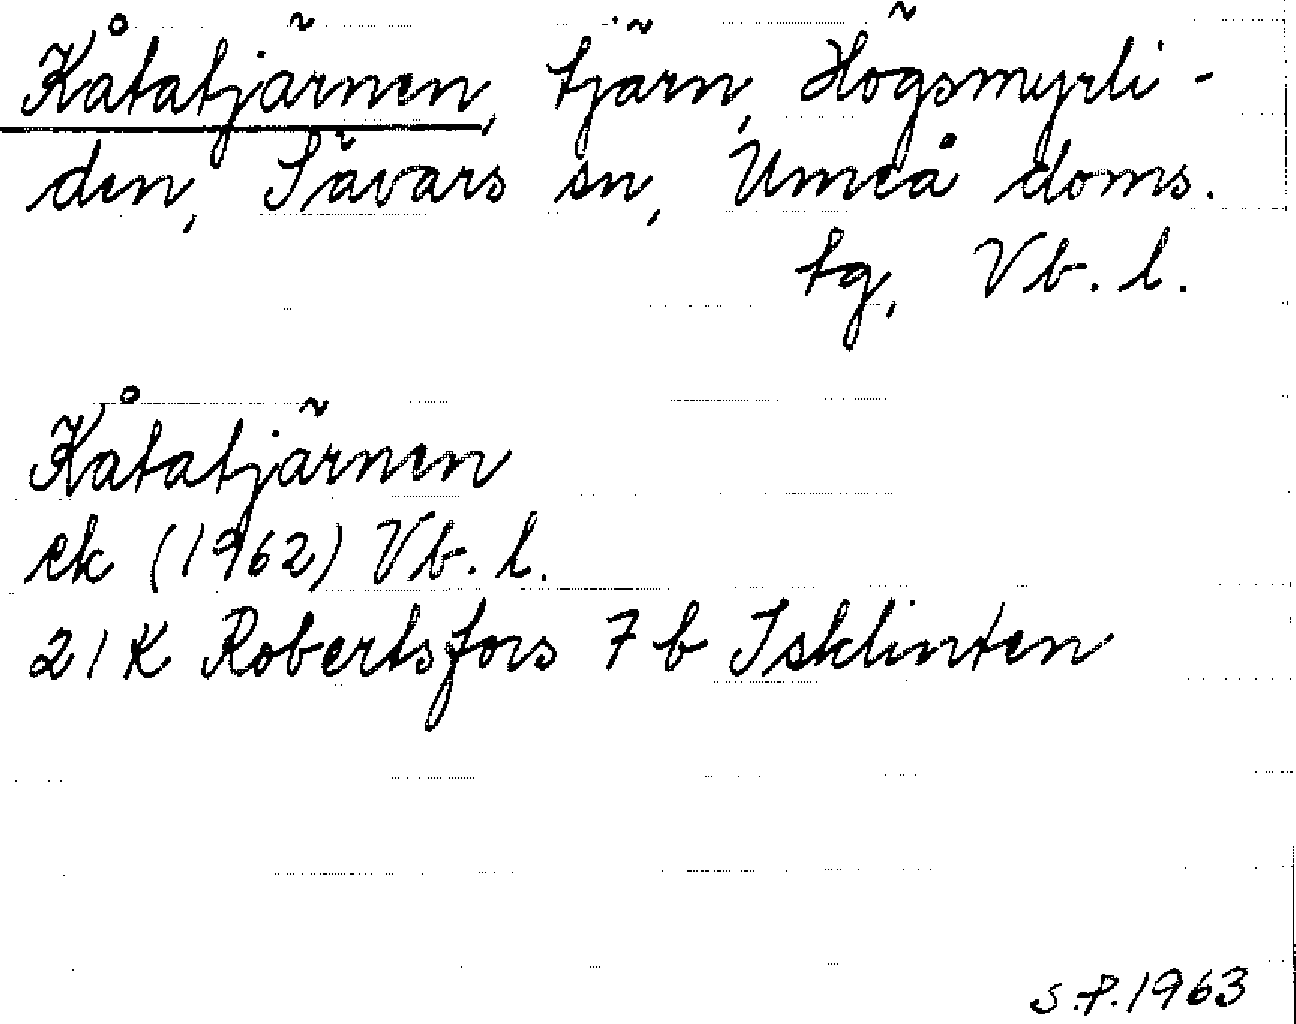 Kåtatjärnen, tjärn, Högsmyrli-
den, Sävars sn, Umeå doms.
tg, Vb. l.
Kåtatjärnen
ek (1962) Vb. l.
21 K Robertsfors 7 b Isklinten
S.P. 1963